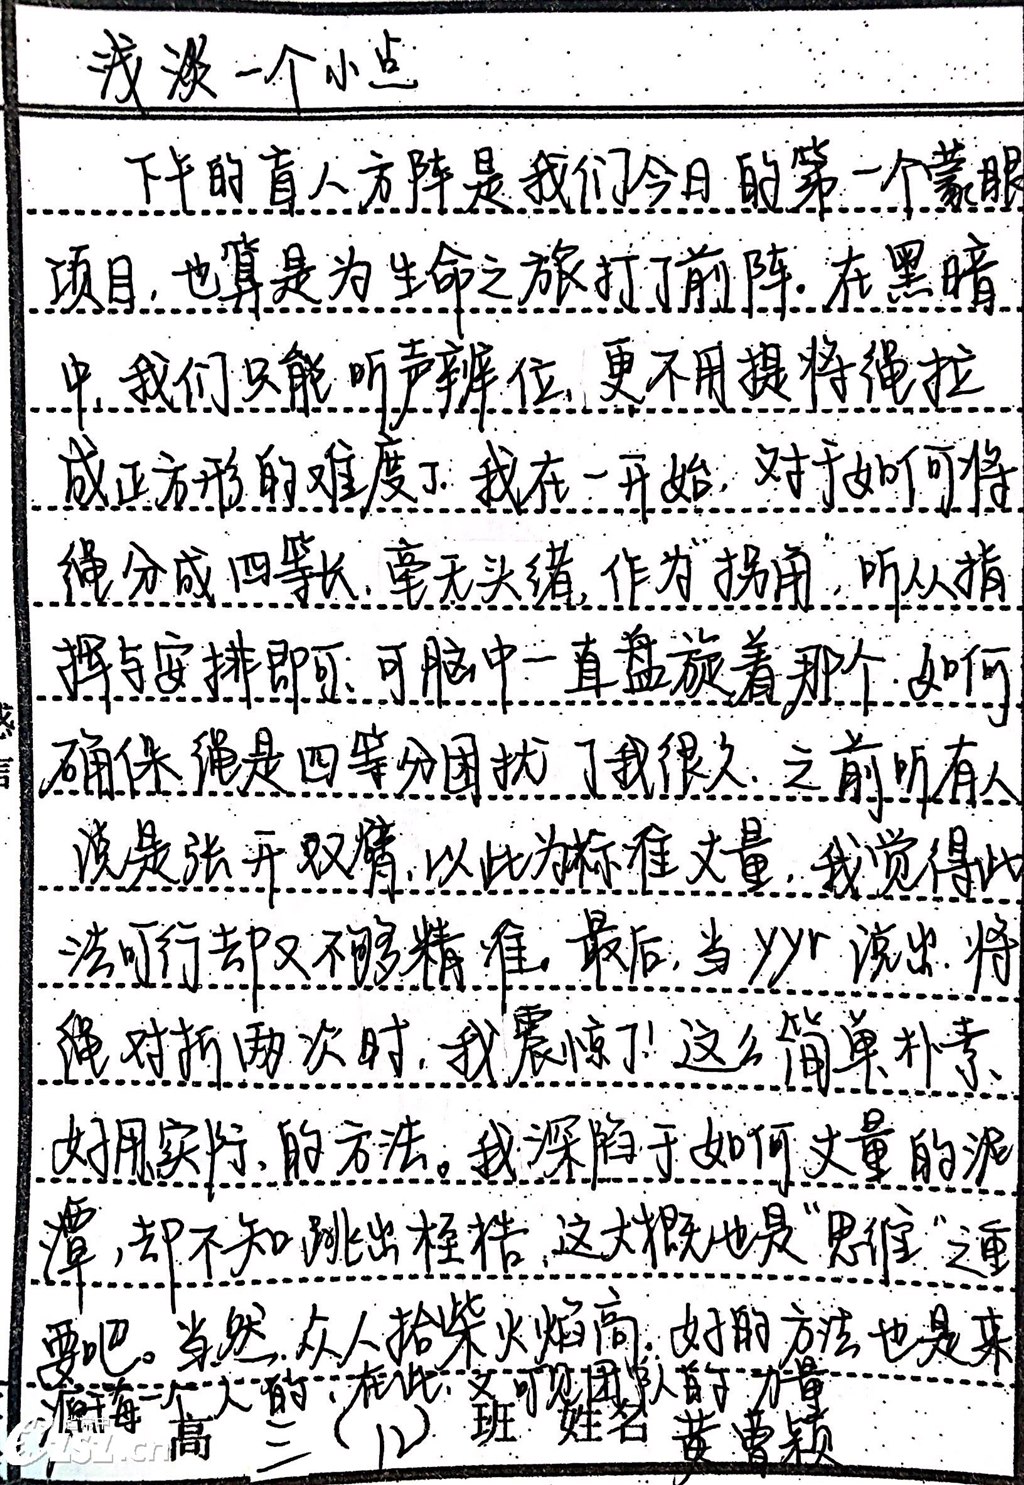 浅淡一个小点
下午的盲人方阵是我们今日的第一个蒙眼
项目,也算是为生命之旅打了前阵。在黑暗
中,我们只能听声辨位,更不用提将绳拉
成正方形的难度了.我在一开始,对于如何将
绳分成四等长,毫无头绪,作为"拐角,听从指
挥与安排即可、可脑中一直盘旋着那个.如何
确保绳是四等分困扰了我很久.之前听有人
说是张开双臂,以此为标准丈量,我觉得此
法可行却又不够精准。最后,当yyr说出.将
绳对折两次时,我震惊了!这么简单、朴素、
好用、实际、的方法。我深陷于如何丈量的泥
潭,却不知跳出桎梏,这大概也是"思维"之重
要吧。当然,众人拾柴火焰高.好的方法也是来
每一个人的,在此,又可见团队的力量
高三(12)班 姓名 黄曹颖
感
言
ZSZ.cn